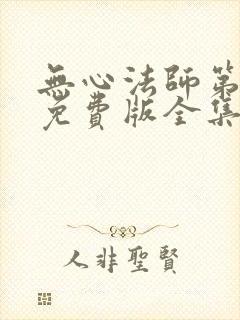 無心法師第
免費版全集
人非聖賢